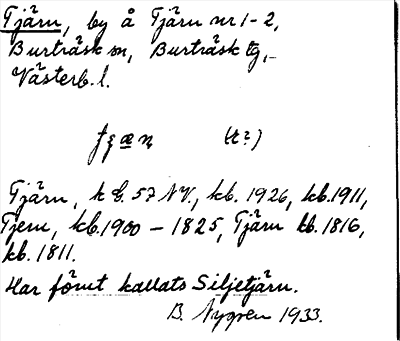 Tjärn, by å Tjärn nr 1-2,
Burträsk sn, Burträsk tg,
Västerb. l.
(t?)
Tjärn, k bl. 57 NV., kb. 1926, kb. 1911,
Tjern, kb. 1900 – 1825, Tjärn kb. 1816,
kb. 1811.
Har förut kallats Siljetjärn.
B. Nygren 1933.